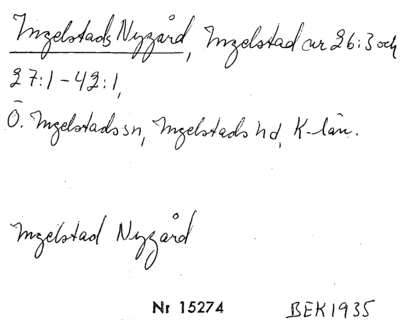 Ingelstads Nygård, Ingelstad ur 26:3 och
27:1-42:1,
Ö. Ingelstads sn, Ingelstads hd, K-län.
Ingelstad Nygård
Nr 15274 BEK 1935